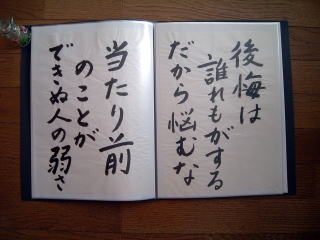 後悔は
誰れもがする
だから悩むな
当たり前
のことが
できぬ人の弱さ